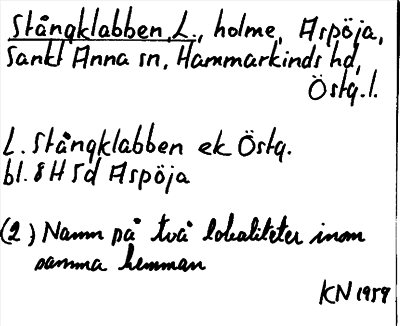 Stångklabben, L., holme, Aspöja,
Sankt Anna sn, Hammarkinds hd,
Östg. l.
L. Stångklabben ek Östg.
bl. 8 H 5d Aspöja
(2) Namn på två lokaliteter inom
samma hemman
KN 1959